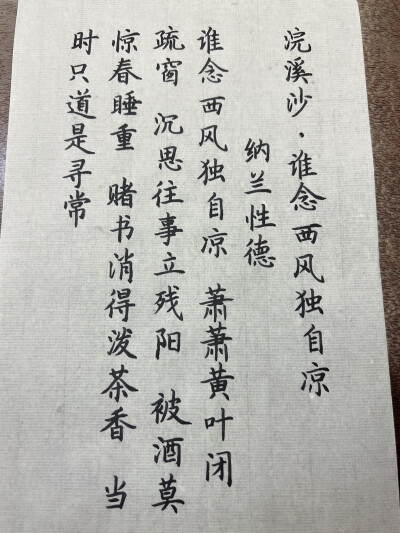 浣溪沙·谁念西风独自凉
纳兰性德
谁念西风独自凉 萧萧黄叶闭
疏窗 沉思往事立残阳 被酒莫
惊春睡重 赌书消得泼茶香 当
时只道是寻常